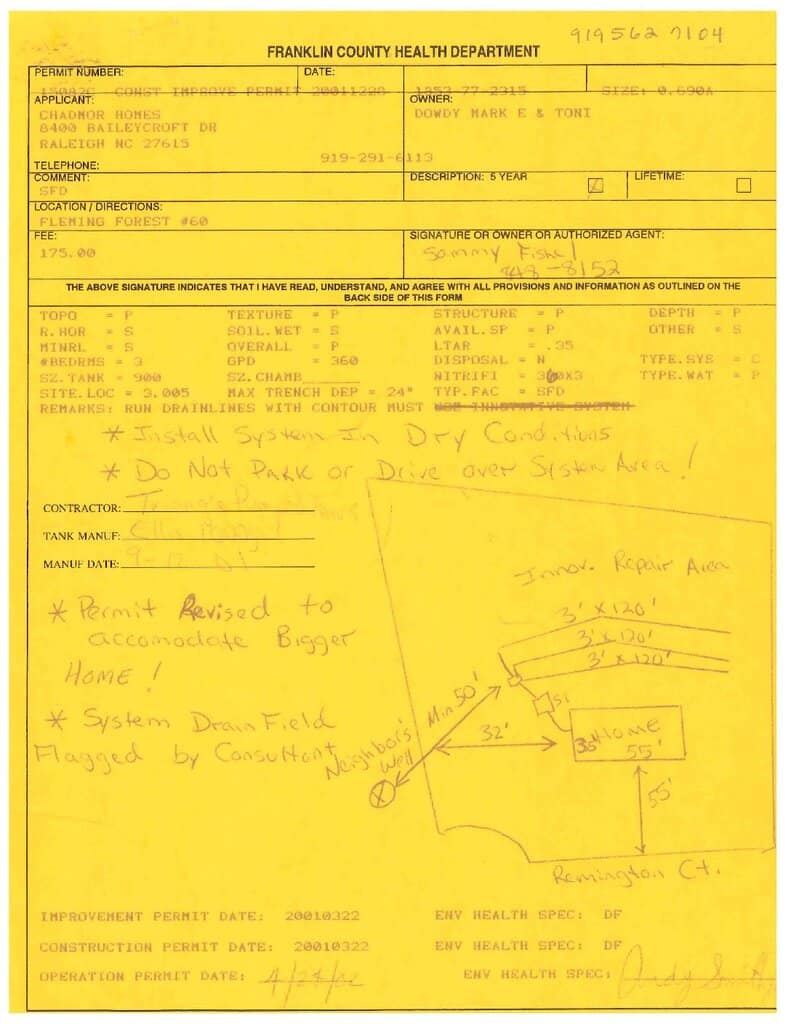 919 562 7104
FRANKLIN COUNTY HEALTH DEPARTMENT
PERMIT NUMBER: DATE:
CONST IMPROVE PERMIT 20011228 1353-77-2315 SIZE: 0.690A
APPLICANT: OWNER:
CHADMOR HOMES DOWDY MARK E & TONI
8400 BAILEYCROFT DR
RALEIGH NC 27615
TELEPHONE: 919-291-6113
COMMENT: DESCRIPTION: 5 YEAR LIFETIME:
SFD
LOCATION / DIRECTIONS:
FLEMING FOREST #60
FEE: SIGNATURE OR OWNER OR AUTHORIZED AGENT:
175.00 Sammy
848-8152
THE ABOVE SIGNATURE INDICATES THAT I HAVE READ, UNDERSTAND, AND AGREE WITH ALL PROVISIONS AND INFORMATION AS OUTLINED ON THE
BACK SIDE OF THIS FORM
TOPO = P TEXTURE = P STRUCTURE = P DEPTH = P
R.HOR = S SOIL.WET = S AVAIL.SP = P OTHER = S
MINRL = S OVERALL = P LTAR = .35
#BEDRMS = 3 GPD = 360 DISPOSAL = N TYPE.SYS = C
SZ.TANK = 900 SZ.CHAMB NITRIFI = 360X3 TYPE.WAT = P
SITE.LOC = 3.005 MAX TRENCH DEP = 24" TYP.FAC = SFD
REMARKS: RUN DRAINLINES WITH CONTOUR MUST USE INNOVATIVE SYSTEM
* Install System In Dry Conditions
* Do Not Park or Drive over System Area!
CONTRACTOR:
TANK MANUF:
MANUF DATE:
Innov. Repair Area
3' X 120'
3' X 120'
3' X 120'
* Permit Revised to
accomodate Bigger
HOME!
* System Drain Field
Flagged by Consultant
Neighbor's
Well
Min 50'
ST
32'
Home
35'
55'
55'
Remington Ct.
IMPROVEMENT PERMIT DATE: 20010322 ENV HEALTH SPEC: DF
CONSTRUCTION PERMIT DATE: 20010322 ENV HEALTH SPEC: DF
OPERATION PERMIT DATE: 4/24/02 ENV HEALTH SPEC: Andy Smith